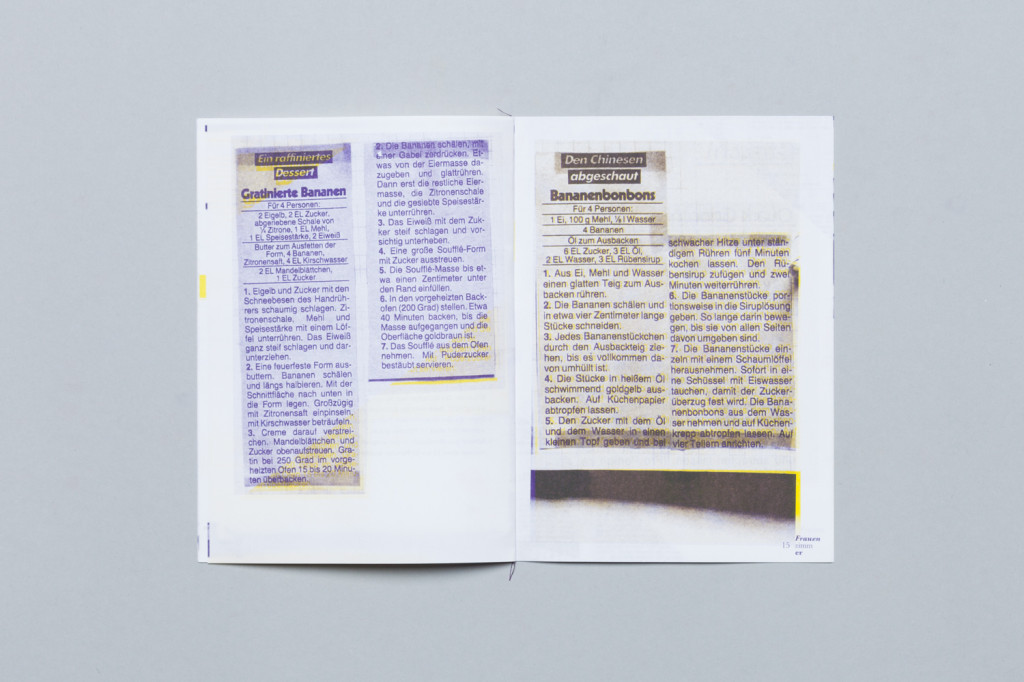 Ein raffiniertes
Dessert
Gratinierte Bananen
Für 4 Personen:
2 Eigelb, 2 EL Zucker,
abgeriebene Schale von
½ Zitrone, 1 EL Mehl,
1 EL Speisestärke, 2 Eiweiß
Butter zum Ausfetten der
Form, 4 Bananen,
Zitronensaft, 4 EL Kirschwasser
2 EL Mandelblättchen,
1 EL Zucker
1. Eigelb und Zucker mit den
Schneebesen des Handrüh-
rers schaumig schlagen. Zi-
tronenschale, Mehl und
Speisestärke mit einem Löf-
fel unterrühren. Das Eiweiß
ganz steif schlagen und dar-
unterziehen.
2. Eine feuerfeste Form aus-
buttern. Bananen schälen
und längs halbieren. Mit der
Schnittfläche nach unten in
die Form legen. Großzügig
mit Zitronensaft einpinseln,
mit Kirschwasser beträufeln.
3. Creme darauf verstrei-
chen. Mandelblättchen und
Zucker obenaufstreuen. Gra-
tin bei 250 Grad im vorge-
heizten Ofen 15 bis 20 Minu-
ten überbacken.
2. Die Bananen schälen, mit
einer Gabel zerdrücken. Et-
was von der Eiermasse da-
zugeben und glattrühren.
Dann erst die restliche Eier-
masse, die Zitronenschale
und die gesiebte Speisestär-
ke unterrühren.
3. Das Eiweiß mit dem Zuk-
ker steif schlagen und vor-
sichtig unterheben.
4. Eine große Soufflé-Form
mit Zucker ausstreuen.
5. Die Soufflé-Masse bis et-
wa einen Zentimeter unter
den Rand einfüllen.
6. In den vorgeheizten Back-
ofen (200 Grad) stellen. Etwa
40 Minuten backen, bis die
Masse aufgegangen und die
Oberfläche goldbraun ist.
7. Das Soufflé aus dem Ofen
nehmen. Mit Puderzucker
bestäubt servieren.
Den Chinesen
abgeschaut
Bananenbonbons
Für 4 Personen:
1 Ei, 100 g Mehl, ⅛ l Wasser
4 Bananen
Öl zum Ausbacken
6 EL Zucker, 3 EL Öl,
2 EL Wasser, 3 EL Rübensirup
1. Aus Ei, Mehl und Wasser
einen glatten Teig zum Aus-
backen rühren.
2. Die Bananen schälen und
in etwa vier Zentimeter lange
Stücke schneiden.
3. Jedes Bananenstückchen
durch den Ausbackteig zie-
hen, bis es vollkommen da-
von umhüllt ist.
4. Die Stücke in heißem Öl
schwimmend goldgelb aus-
backen. Auf Küchenpapier
abtropfen lassen.
5. Den Zucker mit dem Öl
und dem Wasser in einen
kleinen Topf geben und bei
schwacher Hitze unter stän-
digem Rühren fünf Minuten
kochen lassen. Den Rü-
bensirup zufügen und zwei
Minuten weiterrühren.
6. Die Bananenstücke por-
tionsweise in die Siruplösung
geben. So lange darin bewe-
gen, bis sie von allen Seiten
davon umgeben sind.
7. Die Bananenstücke ein-
zeln mit einem Schaumlöffel
herausnehmen. Sofort in ei-
ne Schüssel mit Eiswasser
tauchen, damit der Zucker-
überzug fest wird. Die Bana-
nenbonbons aus dem Was-
ser nehmen und auf Küchen-
krepp abtropfen lassen. Auf
vier Tellern anrichten.
15
Frauen
er